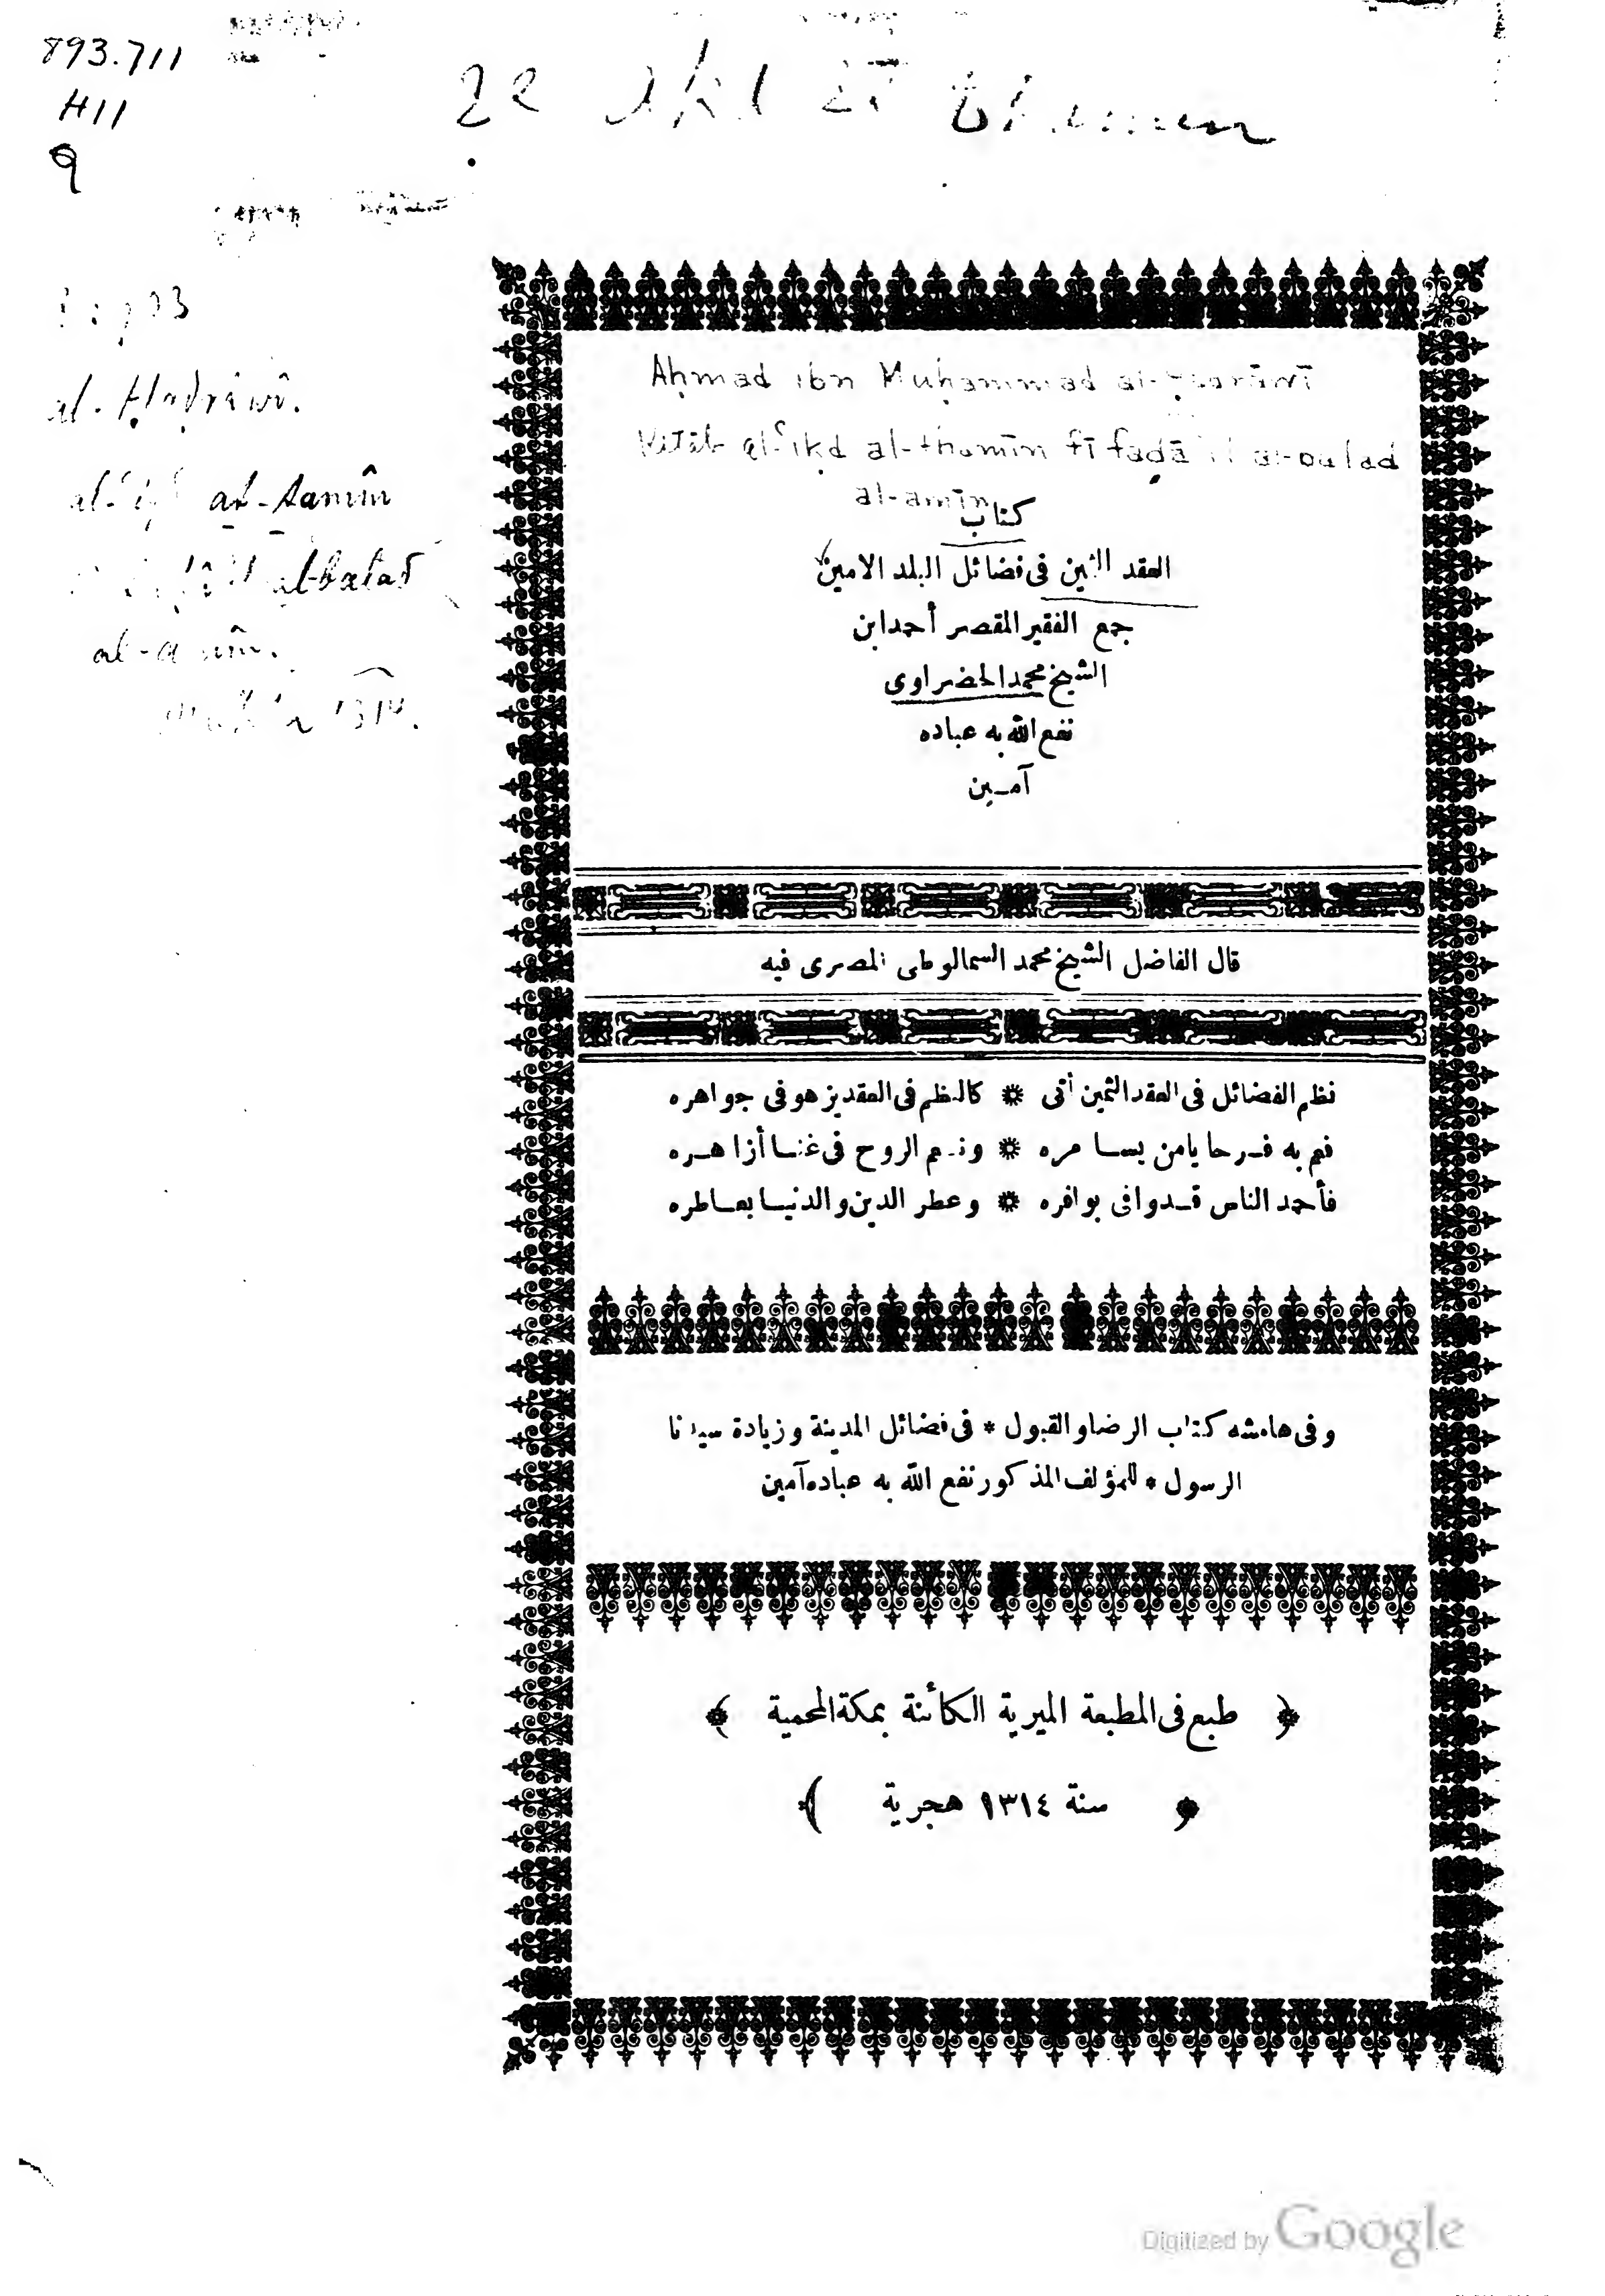 893.711
H11
9
al-Ḥaḍrâwî.
aṯ-ṯamîn
al-balad
Aḥmad ibn Muḥammad
Kitāb al-ʿiḳd al-thamīn fī al-balad
al-amīn
كتاب
العقد الثمين فى فضائل البلد الامين
جمع الفقير المقصر أحمد ابن
الشيخ محمد الحضراوى
نفع الله به عباده
آمين
قال الفاضل الشيخ محمد السمالوطى المصرى فيه
نظم الفضائل فى العقد الثمين أتى * كالنظم فى العقد يزهو فى جواهره
فهم به فرحا يامن يسامره * ونعم الروح فى غنا أزاهره
فأحمد الناس قد وافى بوافره * وعطر الدين والدنيا بعاطره
وفى هامشه كتاب الرضا والقبول * فى فضائل المدينة وزيادة سيدنا
الرسول * للمؤلف المذكور نفع الله به عباده آمين
﴿ طبع فى المطبعة الميرية الكائنة بمكة المحمية ﴾
﴿ سنة ١٣١٤ هجرية ﴾
Digitized by Google